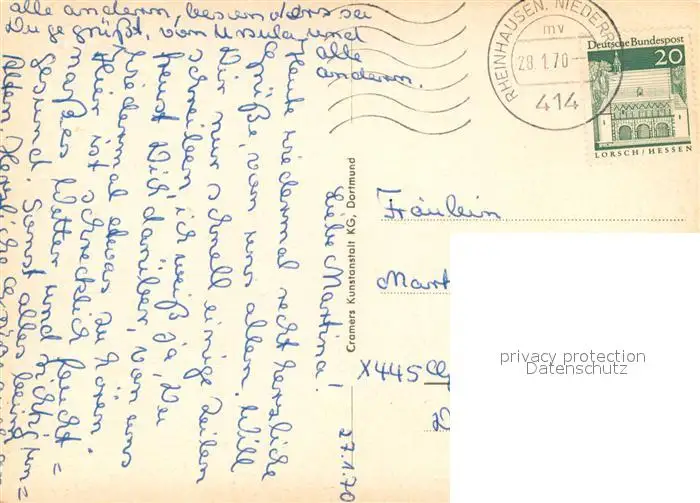 27.1.70
Liebe Martina!
Heute wiedermal recht herzliche
Grüße, von uns allen. Will
Dir nur schnell einige Zeilen
schreiben, ich weiß ja, Du
freust Dich darüber, von uns
wiedermal etwas zu hören.
Hier ist schrecklich feucht=
naßes Wetter und nicht
gesund. Sonst alles beim
Alten. Herzliche Grüße an
alle anderm, besonders sei
Du gegrüßt, von Ursula und
alle
anderen.
Cramers Kunstanstalt KG, Dortmund
RHEINHAUSEN, NIEDERR
mv
28.1.70
414
Deutsche Bundespost
20
LORSCH/HESSEN
Fräulein
Mart
X445
privacy protection
Datenschutz